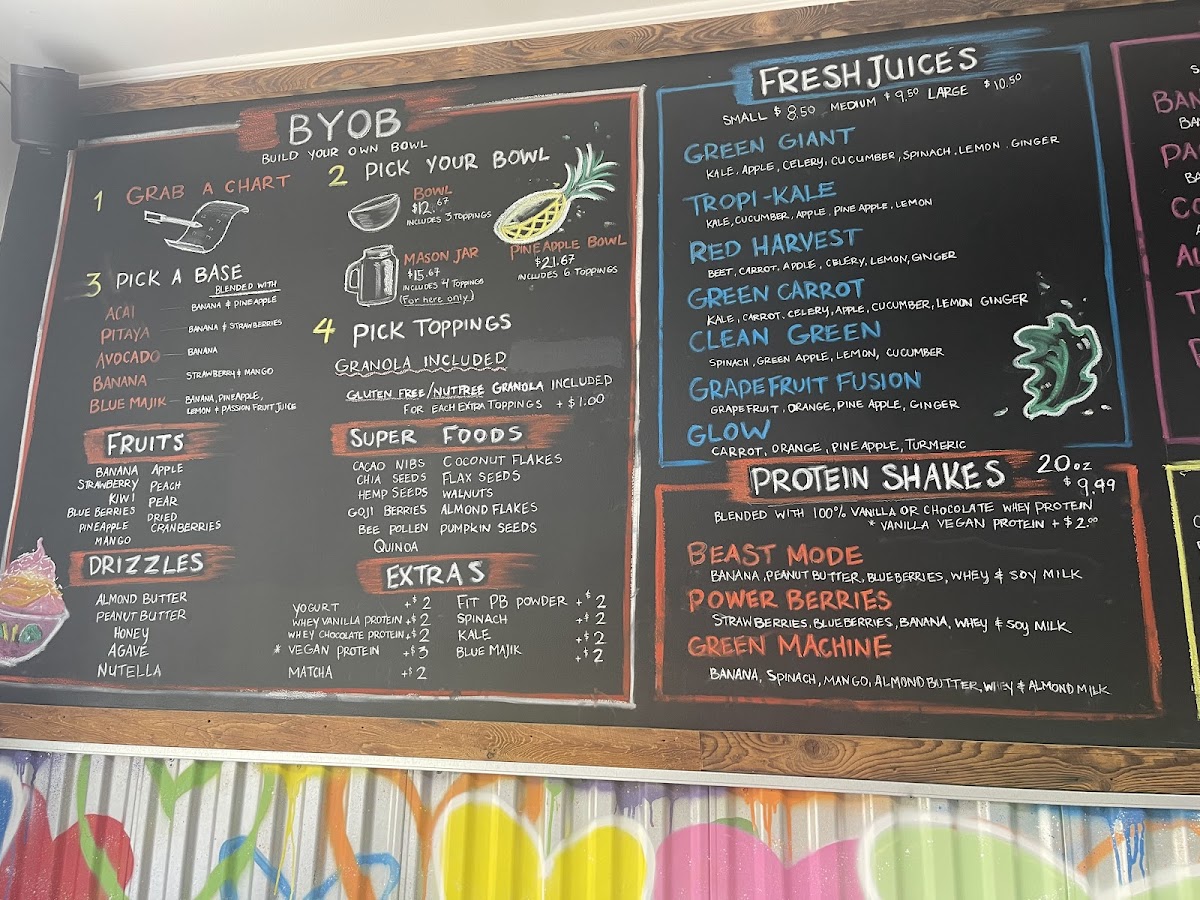 BYOB
BUILD YOUR OWN BOWL
1 GRAB A CHART
2 PICK YOUR BOWL
BOWL
$12.67
INCLUDES 3 TOPPINGS
MASON JAR
$15.67
INCLUDES 4 TOPPINGS
(For here only)
PINEAPPLE BOWL
$21.67
INCLUDES 6 TOPPINGS
3 PICK A BASE
BLENDED WITH
ACAI BANANA & PINEAPPLE
PITAYA BANANA & STRAWBERRIES
AVOCADO BANANA
BANANA STRAWBERRY & MANGO
BLUE MAJIK BANANA, PINEAPPLE,
LEMON & PASSION FRUIT JUICE
4 PICK TOPPINGS
GRANOLA INCLUDED
GLUTEN FREE/NUTFREE GRANOLA INCLUDED
FOR EACH EXTRA TOPPINGS + $1.00
FRUITS
BANANA APPLE
STRAWBERRY PEACH
KIWI PEAR
BLUEBERRIES DRIED
PINEAPPLE CRANBERRIES
MANGO
SUPER FOODS
CACAO NIBS COCONUT FLAKES
CHIA SEEDS FLAX SEEDS
HEMP SEEDS WALNUTS
GOJI BERRIES ALMOND FLAKES
BEE POLLEN PUMPKIN SEEDS
QUINOA
DRIZZLES
ALMOND BUTTER
PEANUT BUTTER
HONEY
AGAVE
NUTELLA
EXTRAS
YOGURT +$2 FIT PB POWDER +$2
WHEY VANILLA PROTEIN +$2 SPINACH +$2
WHEY CHOCOLATE PROTEIN +$2 KALE +$2
* VEGAN PROTEIN +$3 BLUE MAJIK +$2
MATCHA +$2
FRESH JUICE'S
SMALL $8.50 MEDIUM $9.50 LARGE $10.50
GREEN GIANT
KALE, APPLE, CELERY, CUCUMBER, SPINACH, LEMON, GINGER
TROPI-KALE
KALE, CUCUMBER, APPLE, PINEAPPLE, LEMON
RED HARVEST
BEET, CARROT, APPLE, CELERY, LEMON, GINGER
GREEN CARROT
KALE, CARROT, CELERY, APPLE, CUCUMBER, LEMON GINGER
CLEAN GREEN
SPINACH, GREEN APPLE, LEMON, CUCUMBER
GRAPEFRUIT FUSION
GRAPEFRUIT, ORANGE, PINE APPLE, GINGER
GLOW
CARROT, ORANGE, PINEAPPLE, TURMERIC
PROTEIN SHAKES 20oz $9.99
BLENDED WITH 100% VANILLA OR CHOCOLATE WHEY PROTEIN
* VANILLA VEGAN PROTEIN + $2.00
BEAST MODE
BANANA, PEANUT BUTTER, BLUEBERRIES, WHEY & SOY MILK
POWER BERRIES
STRAWBERRIES, BLUEBERRIES, BANANA, WHEY & SOY MILK
GREEN MACHINE
BANANA, SPINACH, MANGO, ALMOND BUTTER, WHEY & ALMOND MILK